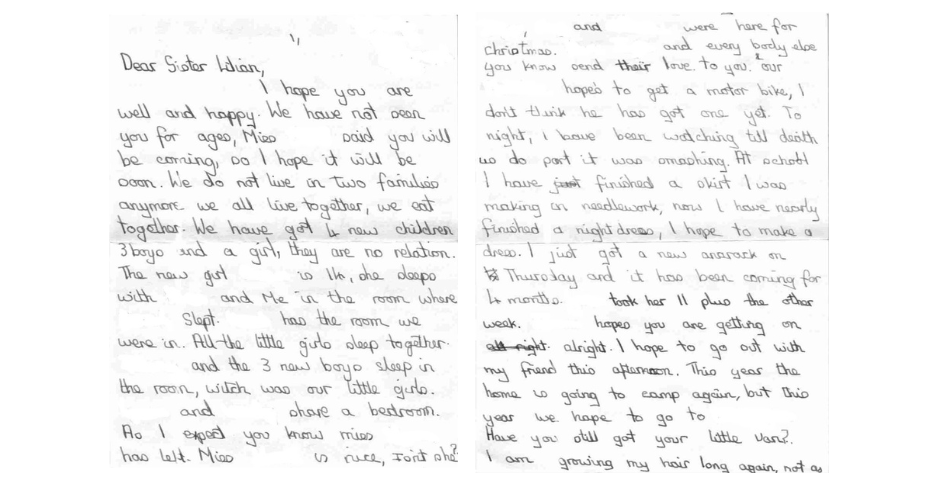 Dear Sister Lilian,
I hope you are
well and happy. We have not seen
you for ages, Miss said you will
be coming, so I hope it will be
soon. We do not live in two families
anymore we all live together, we eat
together. We have got 4 new children
3 boys and a girl, they are no relation.
The new girl is 14, she sleeps
with and Me in the room where
Slept. has the room we
were in. All the little girls sleep together.
and the 3 new boys sleep in
the room, witch was our little girls.
and share a bedroom.
As I expect you know miss
has left. Miss is nice, isn't she?
and were here for
christmas. and every body else
you know send their love to you. our
hopes to get a motor bike, I
don't think he has got one yet. To
night, I have been watching till death
us do part it was smashing. At school
I have just finished a skirt I was
making in needlework, now I have nearly
finished a nightdress, I hope to make a
dress. I just got a new anarack on
Thursday and it has been coming for
4 months. took her 11 plus the other
week. hopes you are getting on
all right. alright. I hope to go out with
my friend this afternoon. This year the
home is going to camp again, but this
year we hope to go to
Have you still got your little van?.
I am growing my hair long again, not as